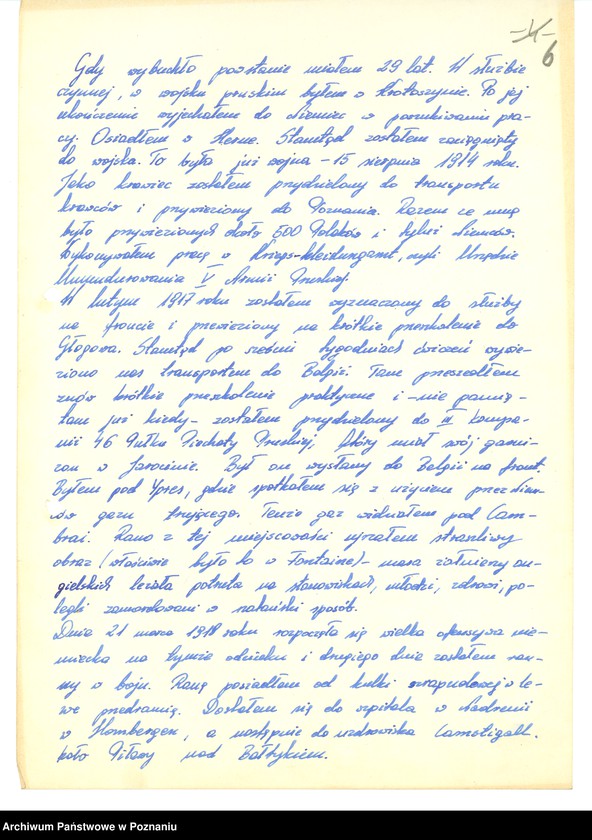 -4-
6
Gdy wybuchło powstanie miałem 29 lat. W służbie
czynnej, w wojsku pruskim byłem w Krotoszynie. Po jej
ukończeniu wyjechałem do Niemiec w poszukiwaniu pra-
cy. Osiadłem w Herne. Stamtąd zostałem zaciągnięty
do wojska. To była już wojna - 15 sierpnia 1914 roku.
Jako krawiec zostałem przydzielony do transportu
krawców i przywieziony do Poznania. Razem ze mną
było przywiezionych około 500 Polaków i tyluż Niemców.
Wykonywałem pracę w Kriegs-bekleidungsamt, czyli Urzędzie
Umundurowania V Armii Pruskiej.
W lutym 1917 roku zostałem wyznaczony do służby
na froncie i przewieziony na krótkie przeszkolenie do
Głogowa. Stamtąd po sześciu tygodniach ćwiczeń wywie-
ziono nas transportem do Belgii. Tam przeszedłem
znów krótkie przeszkolenie praktyczne i - nie pamię-
tam już kiedy - zostałem przydzielony do kompa-
nii 46 Pułku Piechoty Pruskiej, który miał swój garni-
zon w Jarocinie. Był on wysłany do Belgii na front.
Byłem pod Ypres, gdzie spotkałem się z użyciem przez Niem-
ców gazu trującego. Tenże gaz widziałem pod Cam-
brai. Rano z tej miejscowości ujrzałem straszliwy
obraz (właściwie było to w Fontaine) - masa żołnierzy an-
gielskich leżała pokruta na stanowiskach, młodzi, zdrowi, po-
legli zamordowani w szatański sposób.
Dnia 21 marca 1918 roku rozpoczęła się wielka ofensywa nie-
miecka na tymże odcinku i drugiego dnia zostałem ran-
ny w boju. Ranę posiadłem od kulki szrapnelowej w le-
we przedramię. Dostałem się do szpitala w Nadrenii
w Hombergen, a następnie do uzdrowiska
koło Piławy nad Bałtykiem.
Archiwum Państwowe w Poznaniu